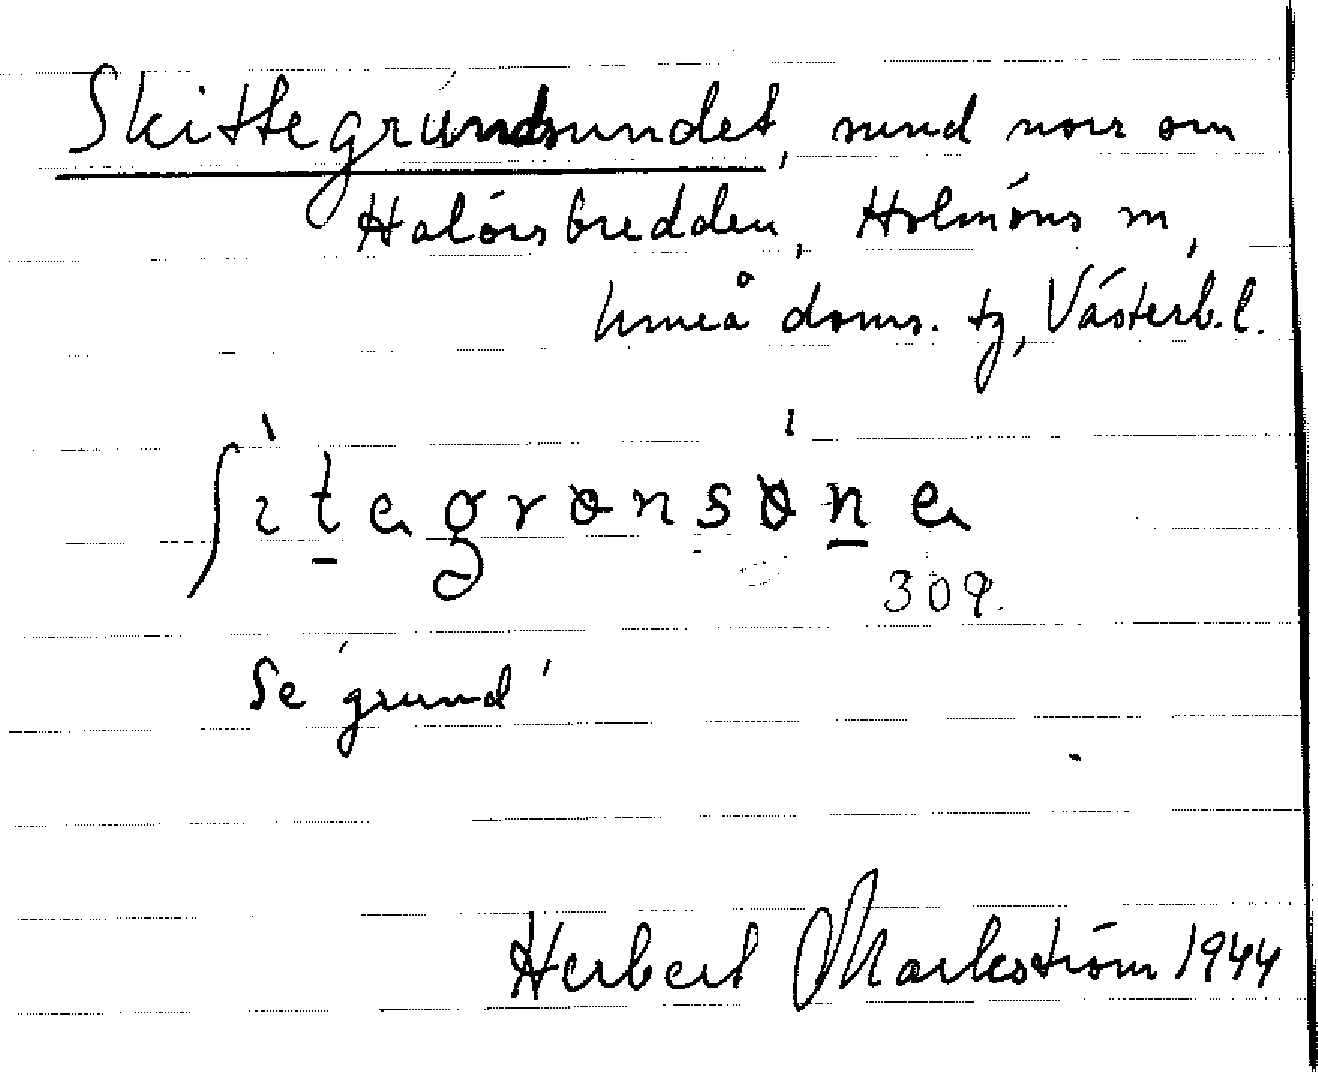 Skittegrundsundet, sund norr om
Halörsbredden, Holmöns sn,
Umeå doms. tg, Västerb.l.
ʃìt̲egrɵnsɵ́n̲e
309.
Se 'grund'
Herbert Markström 1944